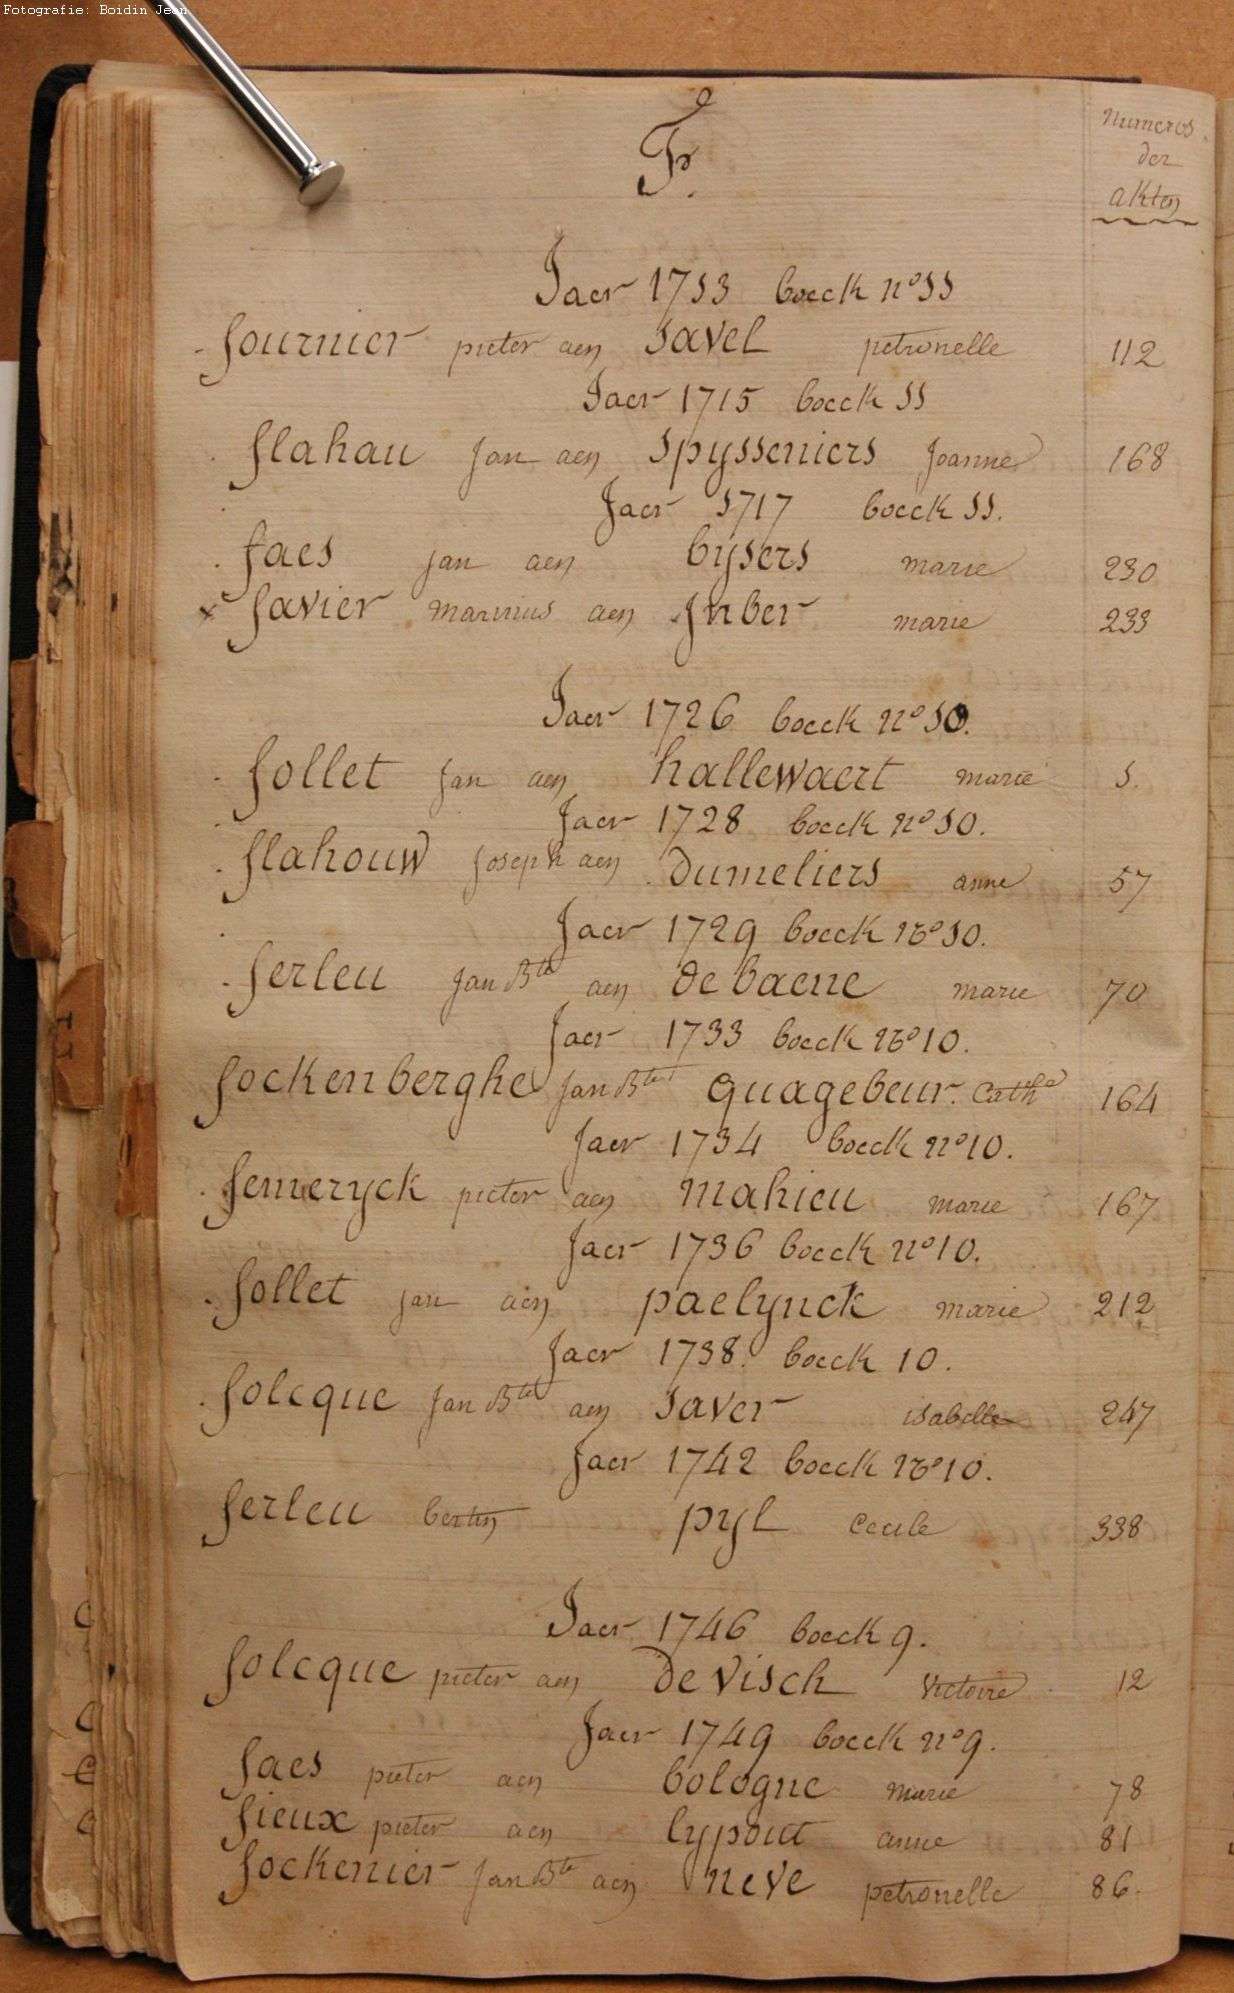 Fotografie: Boidin Jean
F.
Numeros
der
akten
Jaer 1713 boeck n° 11
fournier pieter aen savel petronelle 112
Jaer 1715 boeck 11
flahau Jan aen spysseniers Joanne 168
Jaer 1717 boeck 11.
faes Jan aen bysers marie 230
x favier marinus aen Imber marie 233
Jaer 1726 boeck n° 10.
follet Jan aen hallewaert marie 1.
Jaer 1728 boeck n° 10.
flahouw Joseph aen Dumeliers anne 57
Jaer 1729 boeck n° 10.
ferleu Jan Bte aen de baene marie 70
Jaer 1733 boeck n° 10.
fockenberghe Jan Bte quagebeur. Cathe 164
Jaer 1734 boeck n° 10.
femeryck pieter aen mahieu marie 167
Jaer 1736 boeck n° 10.
follet Jan aen paelynck marie 212
Jaer 1738. boeck 10.
folcque Jan Bte aen saver isabelle 247
Jaer 1742 boeck n° 10.
ferleu bertin pyl Cecile 338
Jaer 1746 boeck 9.
folcque pieter aen De visch victoire 12
Jaer 1749 boeck n° 9.
faes pieter aen bologne marie 78
fieux pieter aen lypout anne 81
fockenier Jan Bte aen neve petronelle 86.